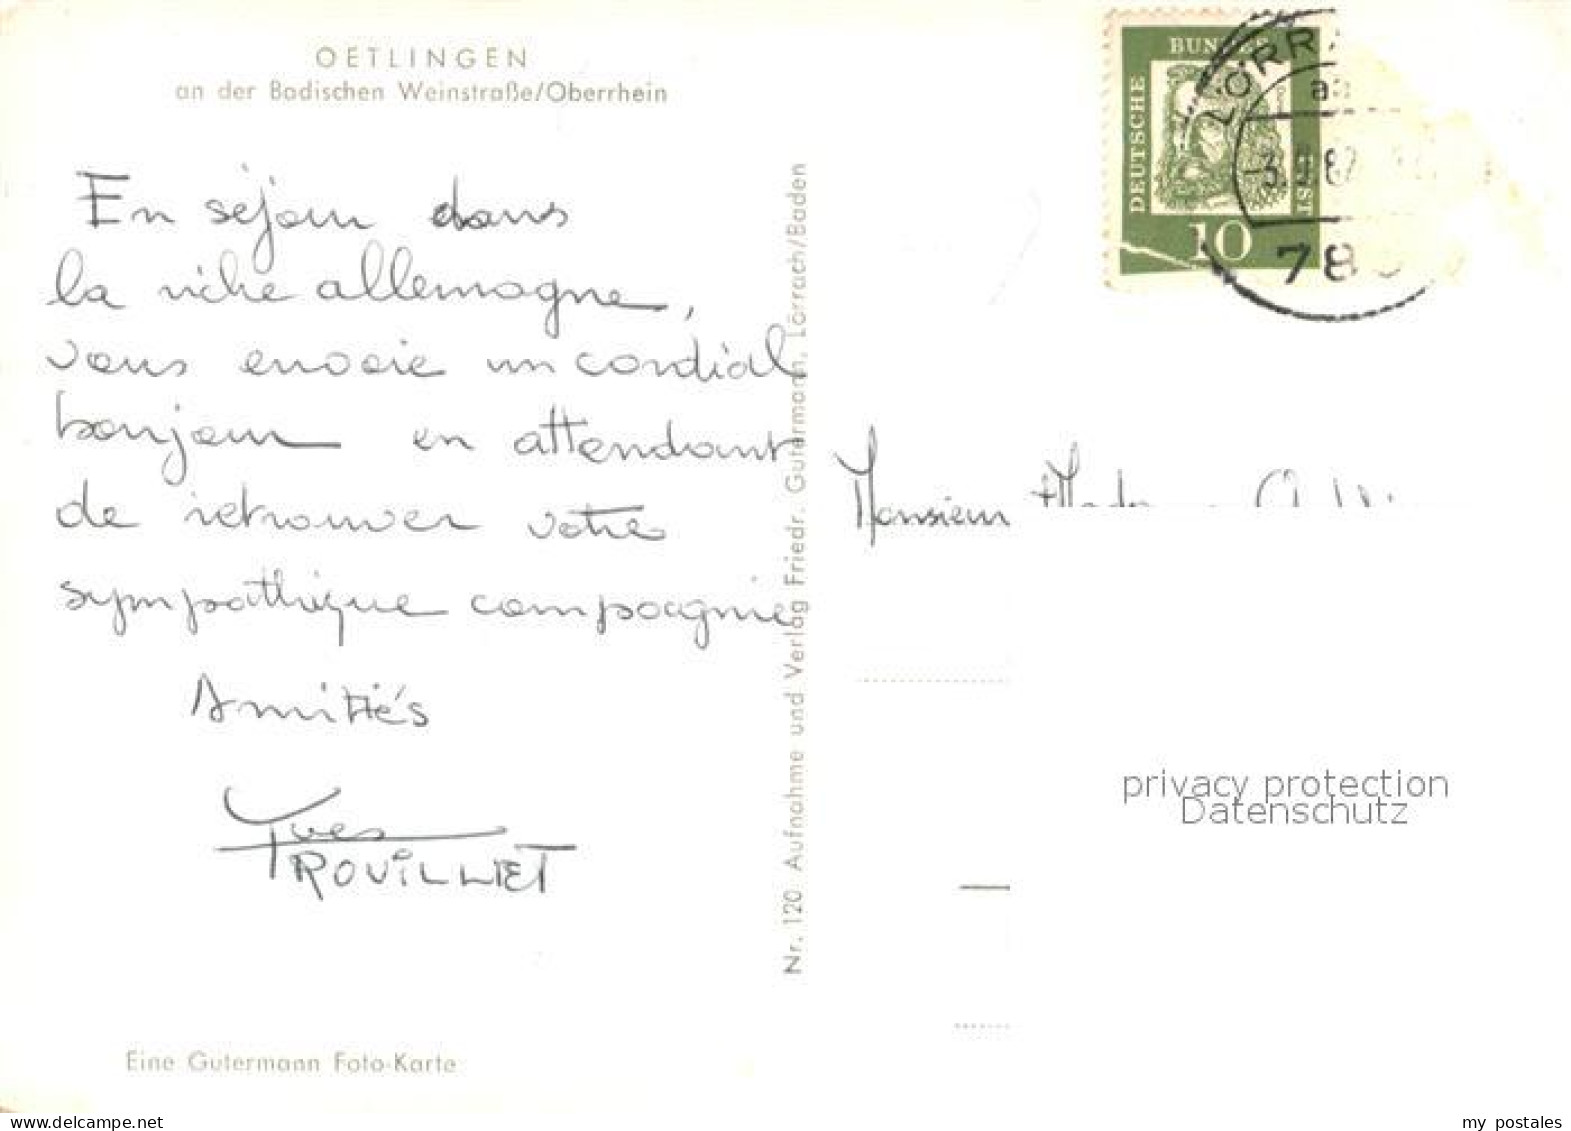 OETLINGEN
an der Badischen Weinstraße/Oberrhein
En séjour dans
la riche allemagne,
vous envoie un cordial
bonjour en attendant
de retrouver votre
sympathique compagnie
Amitiés
Yves
TROUILLIET
Eine Gutermann Foto-Karte
Nr. 120 Aufnahme und Verlag Friedr. Gutermann, Lörrach/Baden
DEUTSCHE
BUNDES
POST
10
LÖRR
78
Monsieur
privacy protection
Datenschutz
www.delcampe.net
my_postales